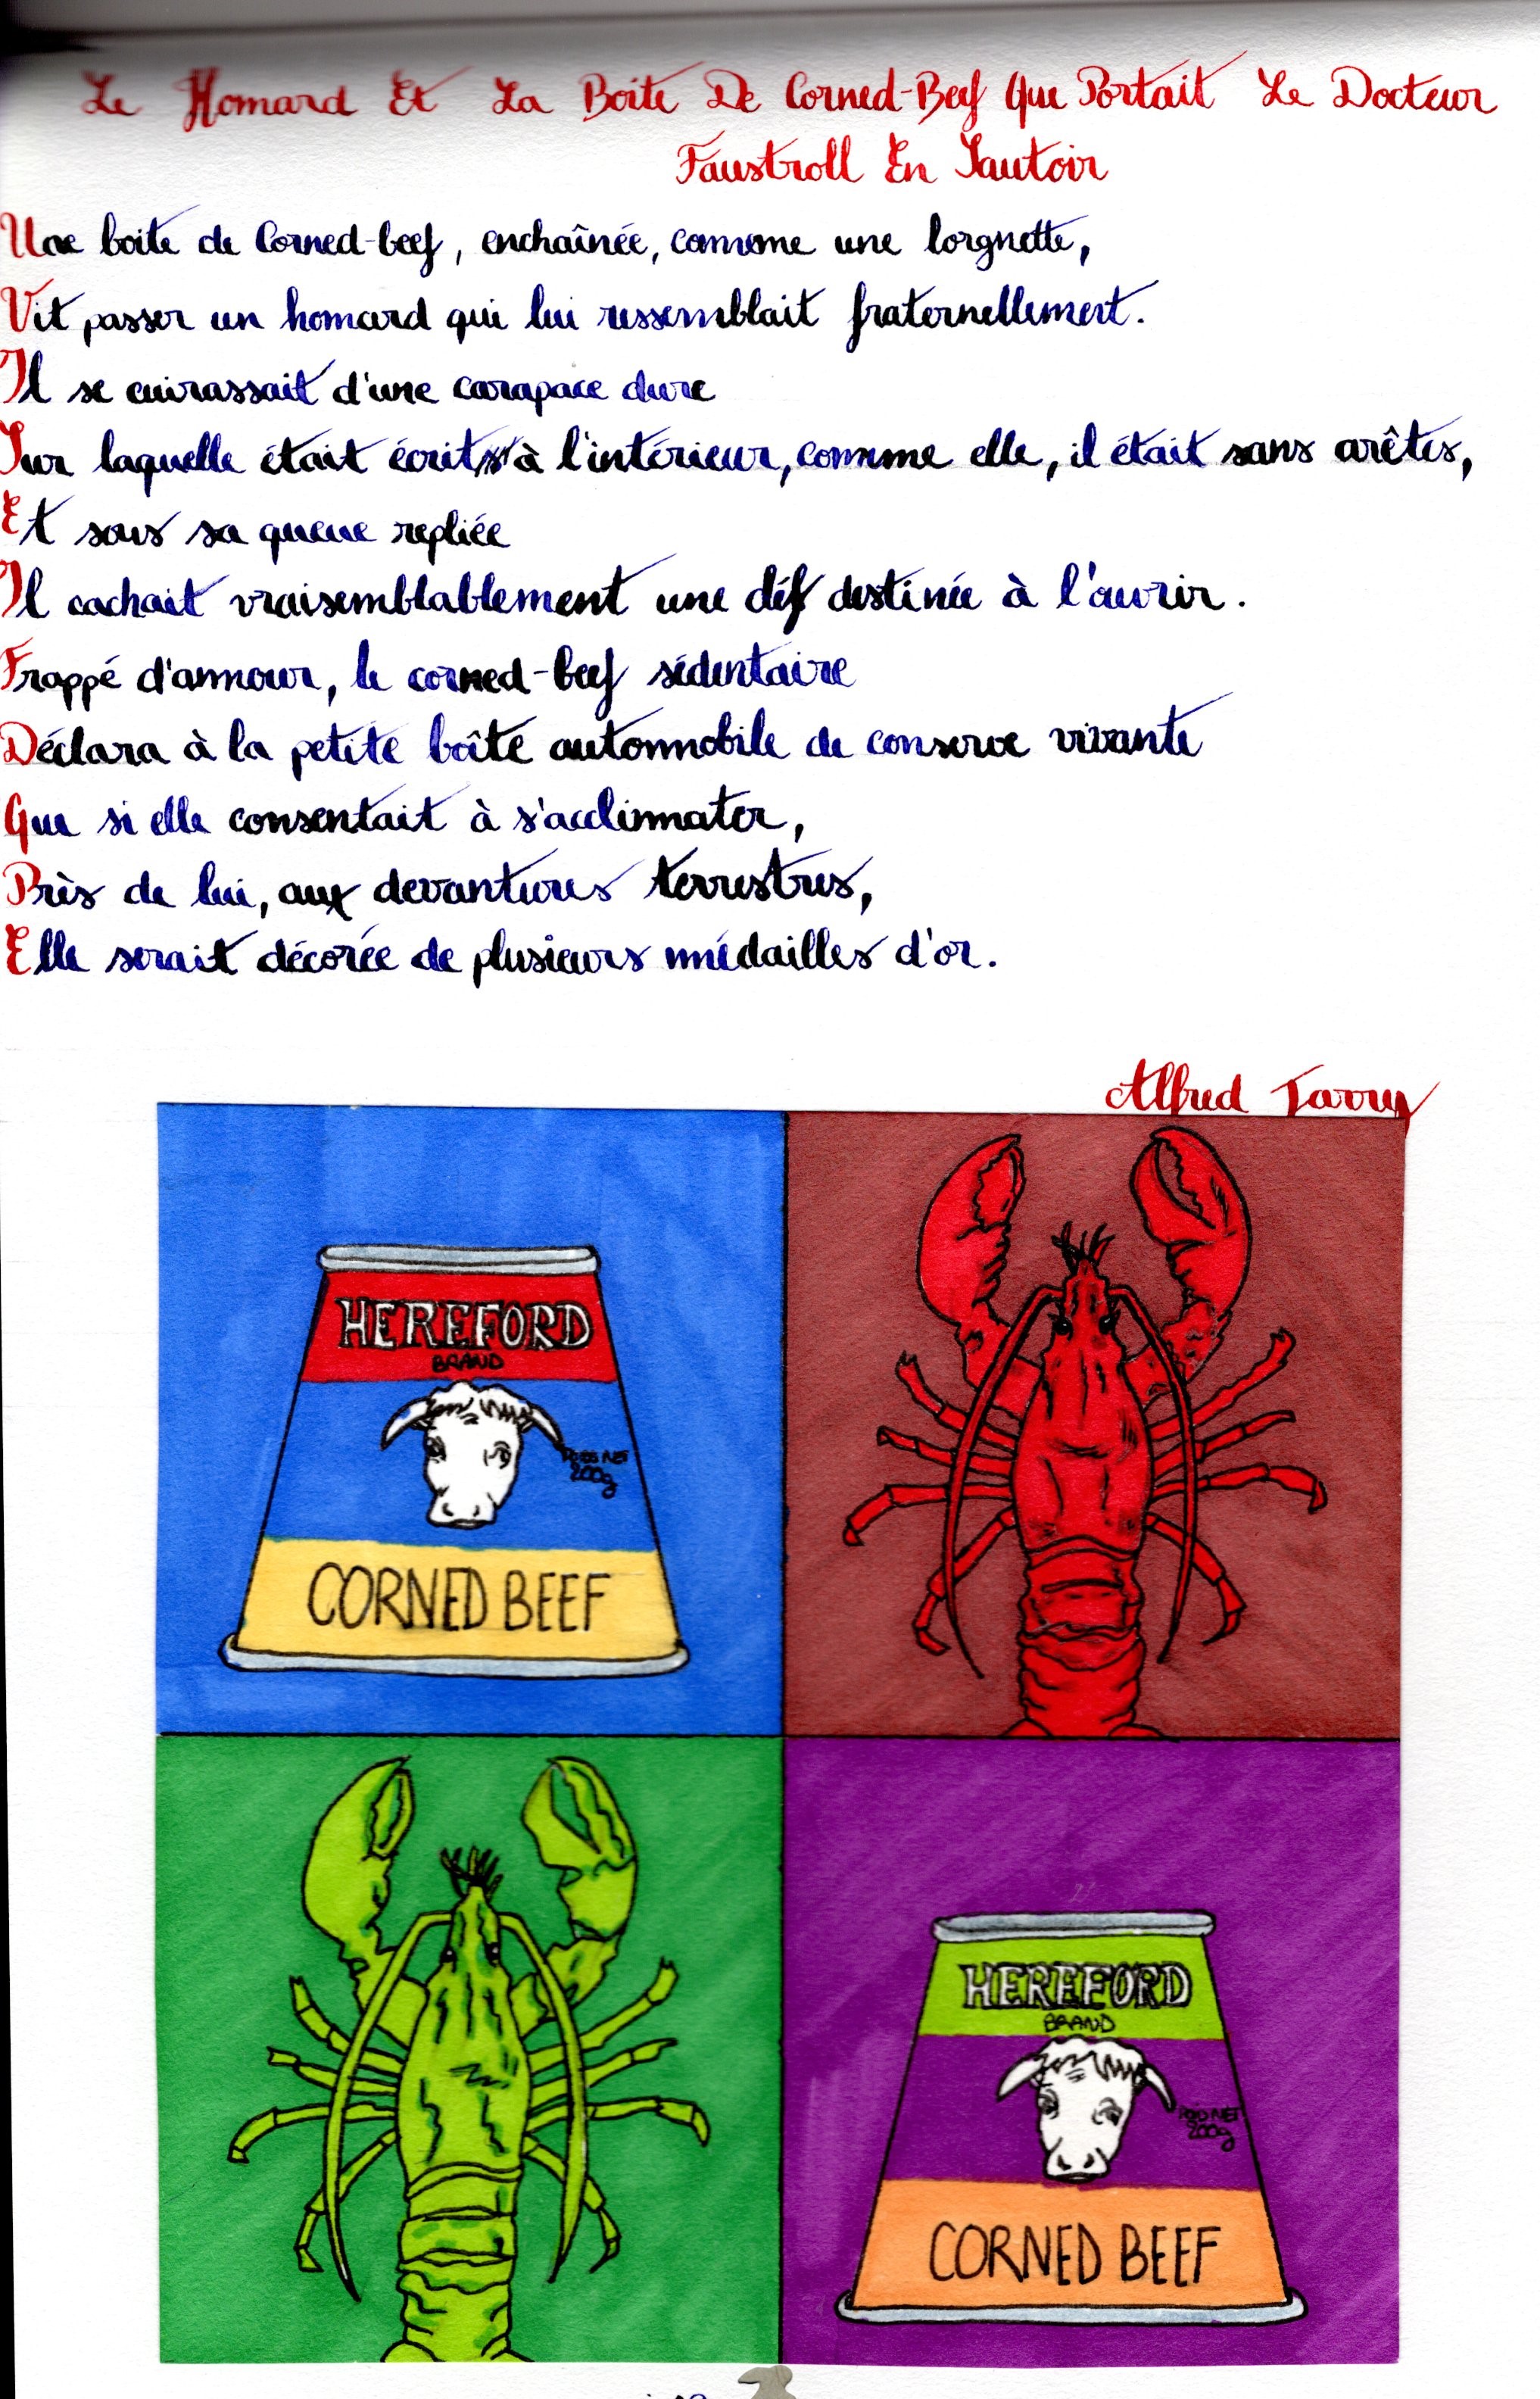 Le Homard Et La Boite De Corned-Beef Que Portait Le Docteur
Faustroll En Sautoir
Une boite de Corned-beef, enchaînée, comme une lorgnette,
Vit passer un homard qui lui ressemblait fraternellement.
Il se cuirassait d'une carapace dure
Sur laquelle était écrit à l'intérieur, comme elle, il était sans arêtes,
Et sous sa queue repliée
Il cachait vraisemblablement une clef destinée à l'ouvrir.
Frappé d'amour, le corned-beef sédentaire
Déclara à la petite boîte automobile de conserve vivante
Que si elle consentait à s'acclimater,
Près de lui, aux devantures terrestres,
Elle serait décorée de plusieurs médailles d'or.
Alfred Jarry
HEREFORD
BRAND
POIDS NET
200g
CORNED BEEF
HEREFORD
BRAND
POID NET
200g
CORNED BEEF